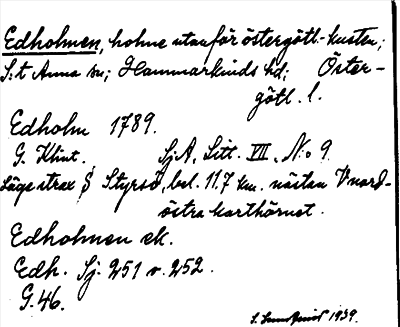 Edholmen, holme utanför östergötl.-kusten;
S:t Anna sn; Hammarkinds hd; Öster-
götl. l.
Edholm 1789.
G. Klint. SjA, Litt. VII, No 9.
Läge strax S Styrsö, bel. 11.7 km. nästan V nord-
östra karthörnet.
Edholmen ek.
Edh. Sj. 251 v. 252.
G. 46.
S. 1939.